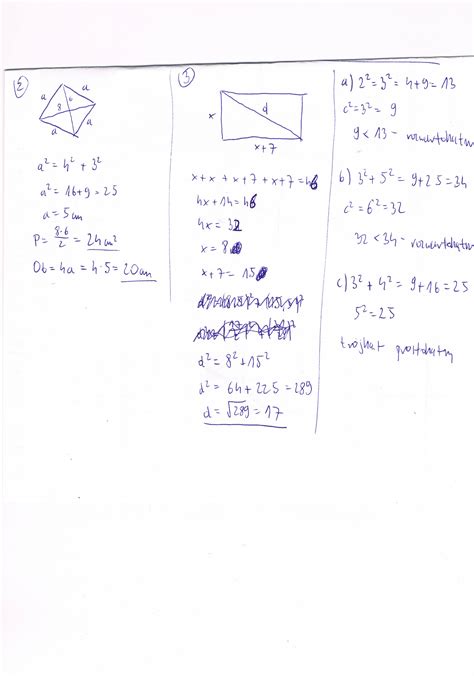 2
a
a
8
6
a
a
a² = 4² + 3²
a² = 16+9 = 25
a = 5 cm
P = 8·6/2 = 24 cm²
Ob = 4a = 4·5 = 20 cm
3
x
d
x+7
x + x + x + 7 + x + 7 = 46
4x + 14 = 46
4x = 32
x = 8
x+7 = 15
d² = 8² + 15²
d² = 64 + 225 = 289
d = √289 = 17
a) 2² = 3² = 4+9 = 13
c² = 3² = 9
9 < 13 - rozwartokątny
b) 3² + 5² = 9+25 = 34
c² = 6² = 32
32 < 34 - rozwartokątny
c) 3² + 4² = 9+16 = 25
5² = 25
trójkąt prostokątny